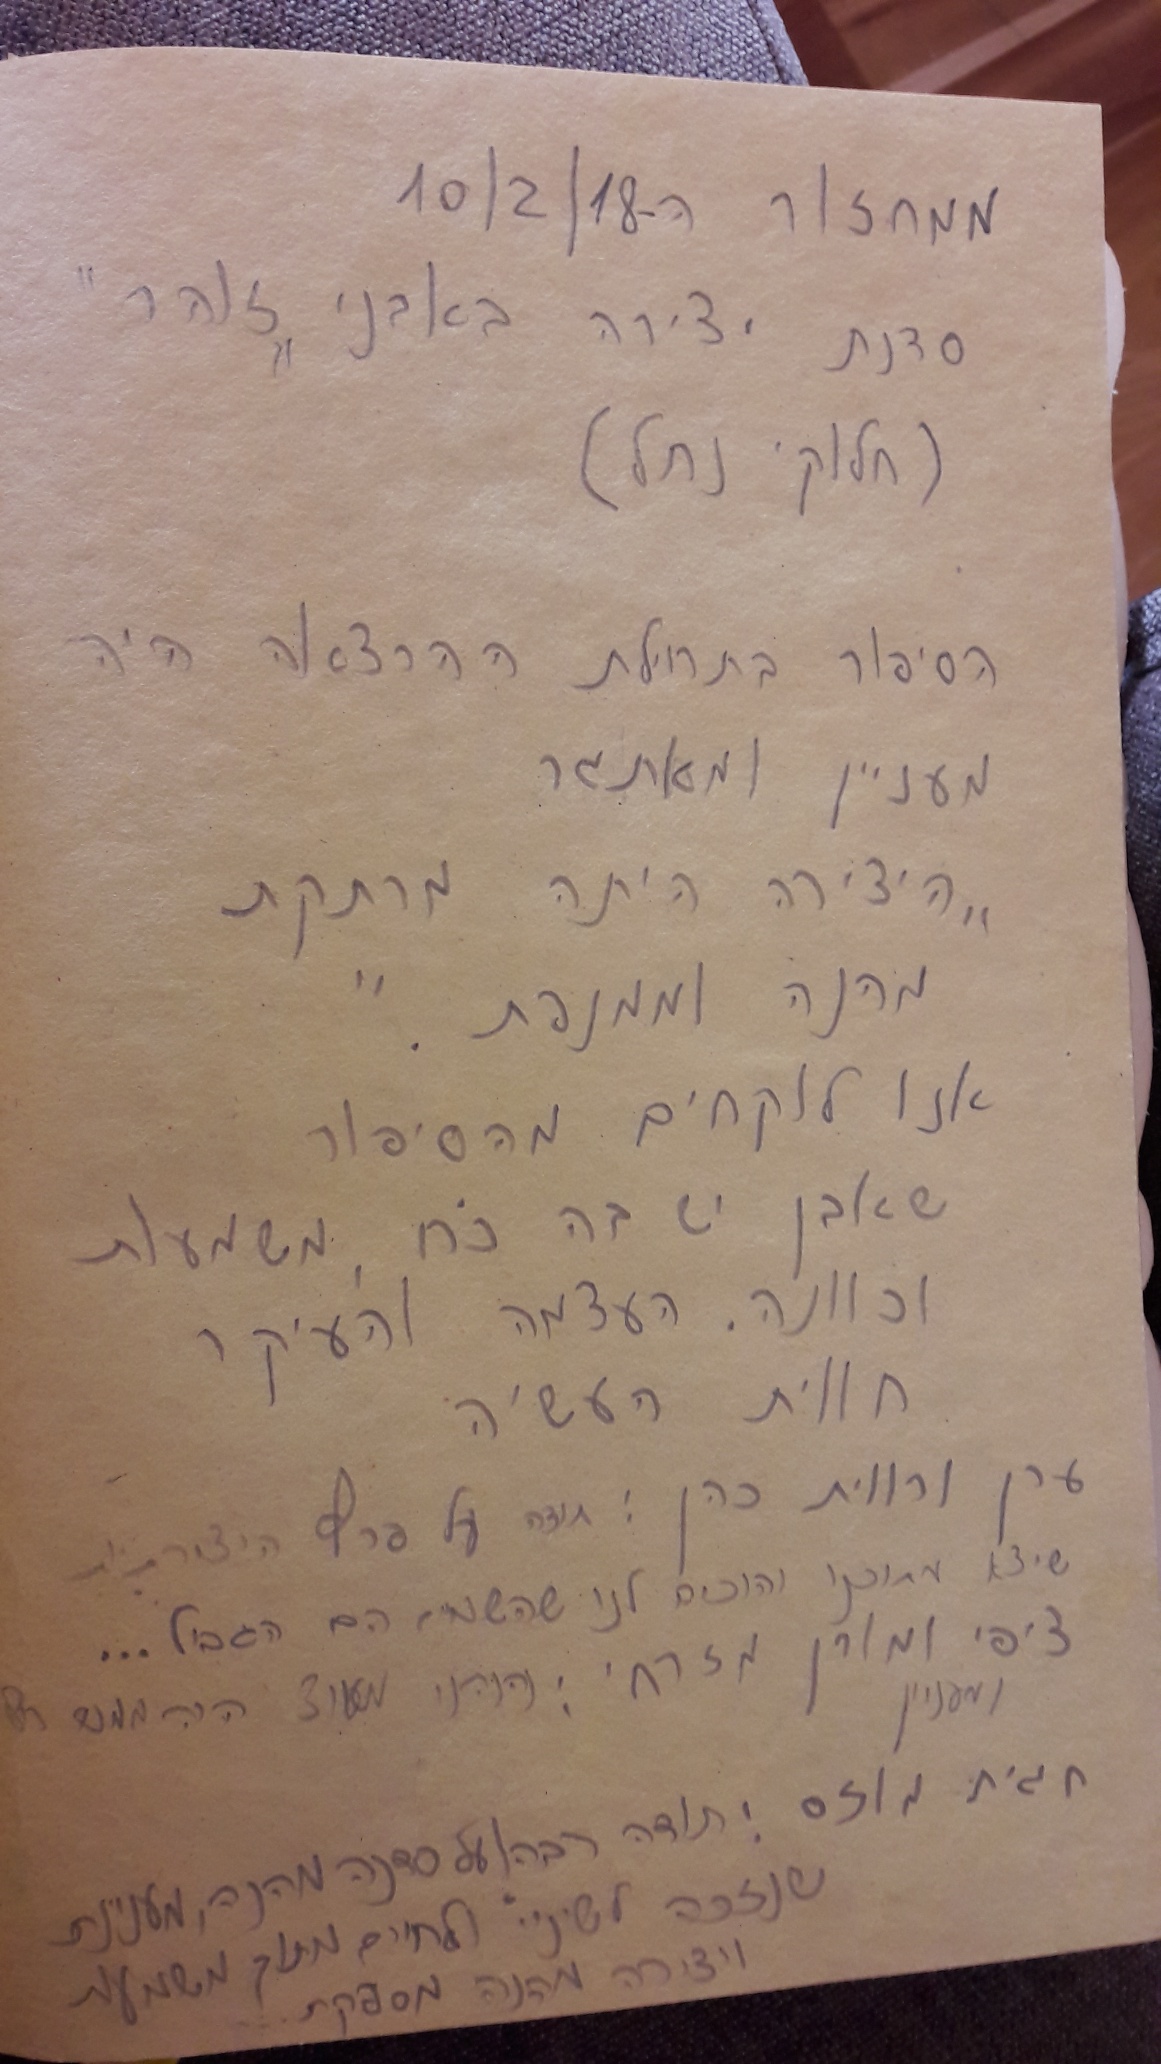 ממחזור ה-10/2/18
סדנת יצירה באבני „זוהר"
(חלוקי נחל)
הסיפור בתחילת ההרצאה היה
מעניין ומאתגר
„היצירה היתה מרתקת
מהנה וממנפת."
אנו לוקחים מהסיפור
שאבן יש בה כח, משמעות
וכוונה. העצמה והעיקר
חווית העשיה
ערן ורווית כהן: תודה על פרץ היצירתיות
שיצא מתוכנו והוכיח לנו שהשמים הם הגבול...
ציפי ומורן מזרחי: נהננו מאוד היה ממש
ומעניין
חגית מוזס: תודה רבה על סדנה מהנה, מעניינת
שנזכה לשינוי ולחיים מתוך משמעות
ויצירה מהנה מספקת...